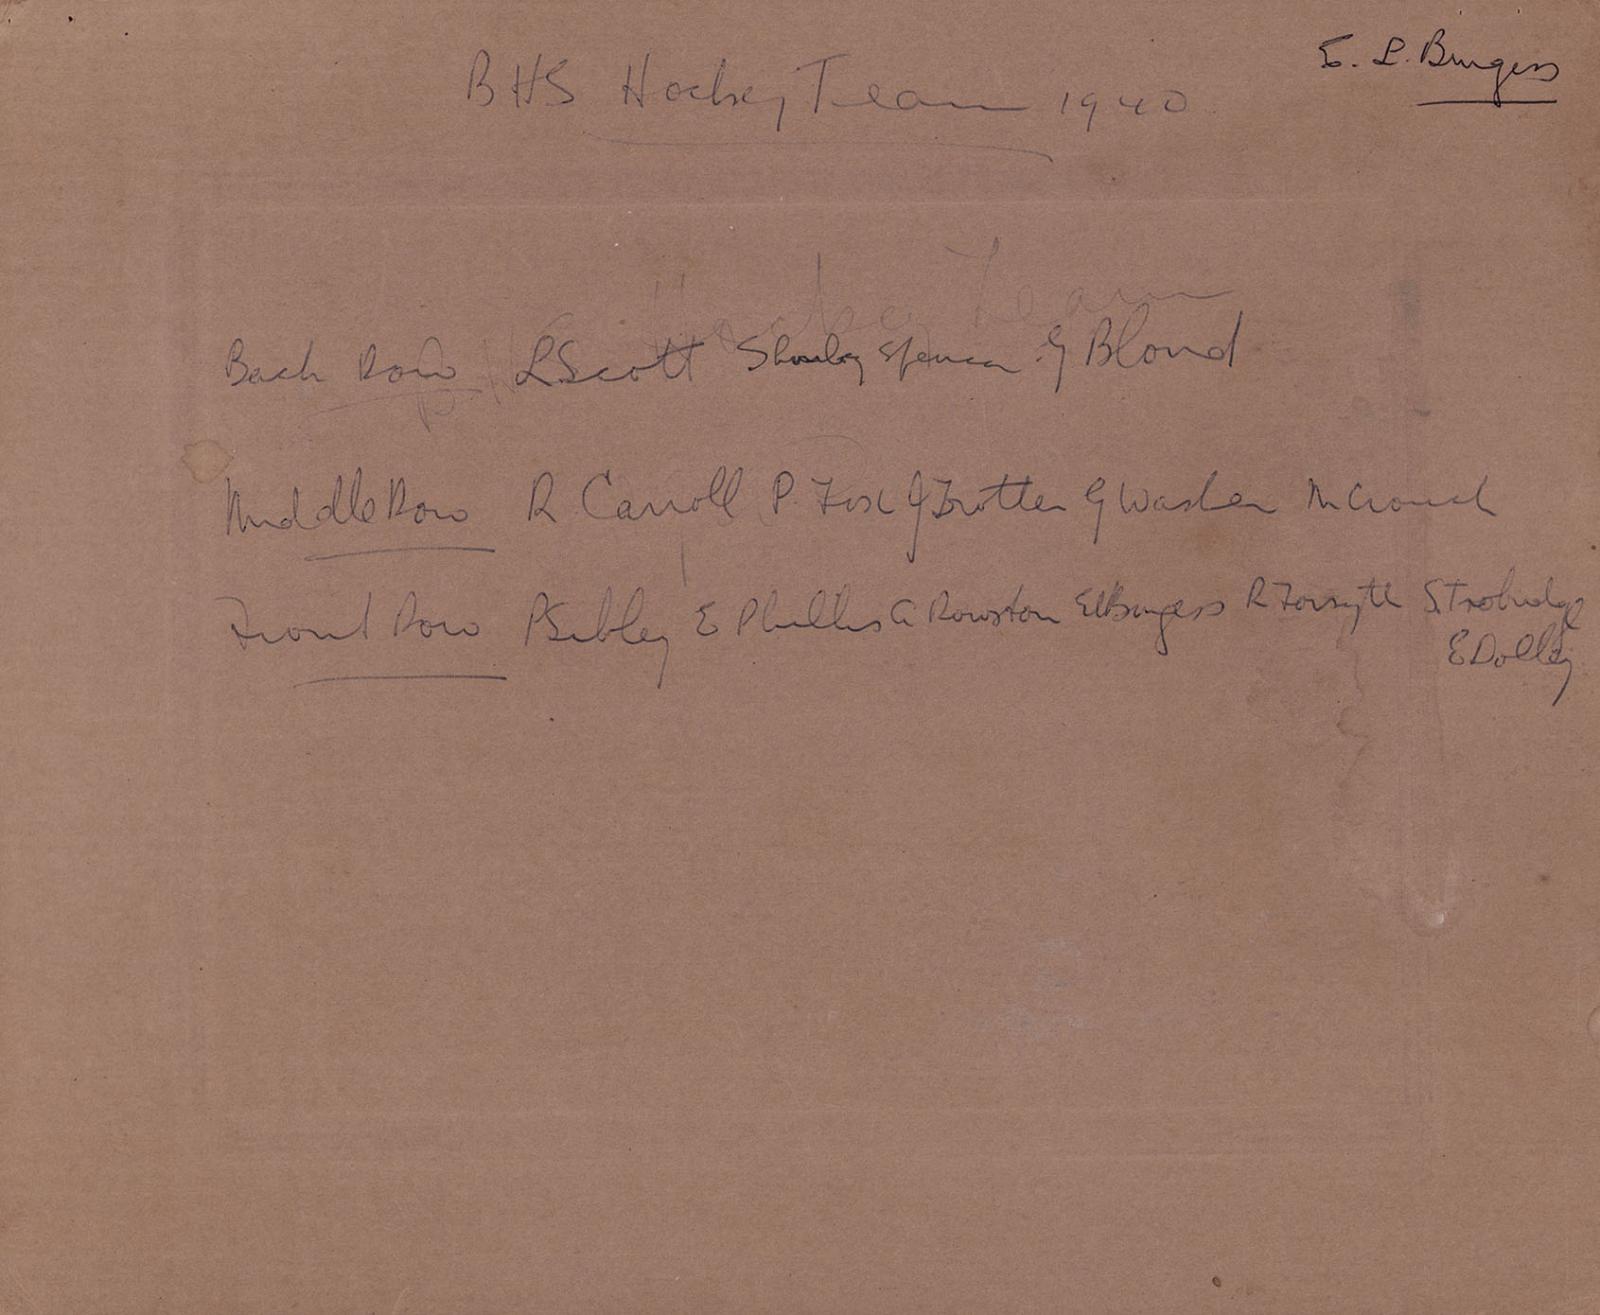 E. L. Burgess
BHS Hockey Team 1940
Hockey Team
Back Row L Scott Shirley Spencer G Blond
Middle Row R Carroll P. Fox J Trotter G Washer M Crouch
Front Row P Sibley E Phillis G Rowston E L Burgess R Forsyth S. Trobridge
E Dolley